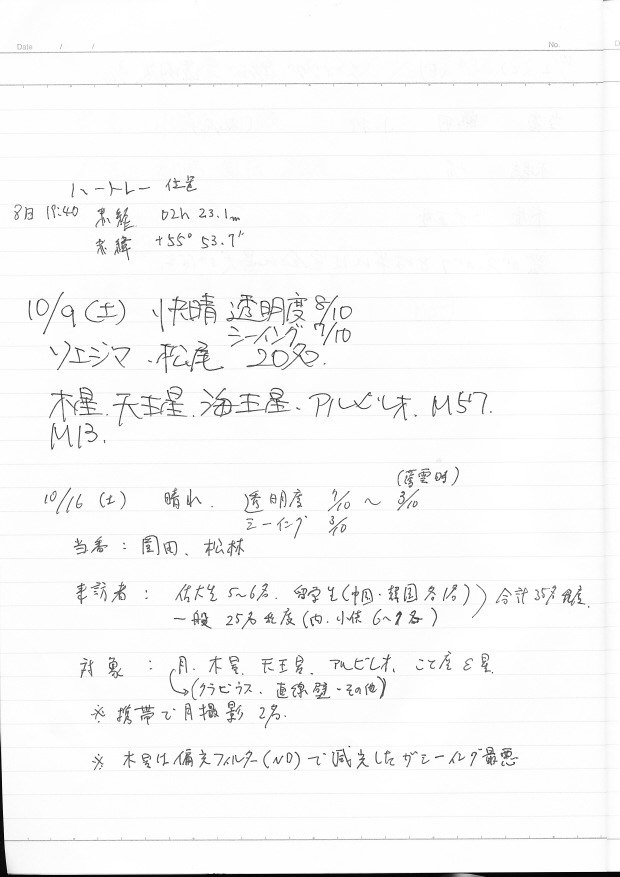 Date / /
No.
ハートレー 位置
8日 19:40 赤経 02h 23.1m
赤緯 +55° 53.7'
10/9(土) 快晴 透明度 8/10
シーイング 7/10
ソエジマ、松尾 20名.
木星、天王星、海王星、アルビレオ、M57.
M13.
(薄雲時)
10/16 (土) 晴れ. 透明度 7/10 ~ 3/10
シーイング 3/10
当番: 園田、松林
来訪者: 佐大生5~6名. 留学生(中国・韓国各1名)) 合計35名程度.
一般 25名程度(内、小供 6~7名)
対象: 月、木星、天王星、アルビレオ、こと座ε星
(クラビウス、直線壁・その他)
※ 携帯で月撮影 2名.
※ 木星は偏光フィルター(ND)で減光したがシーイング最悪